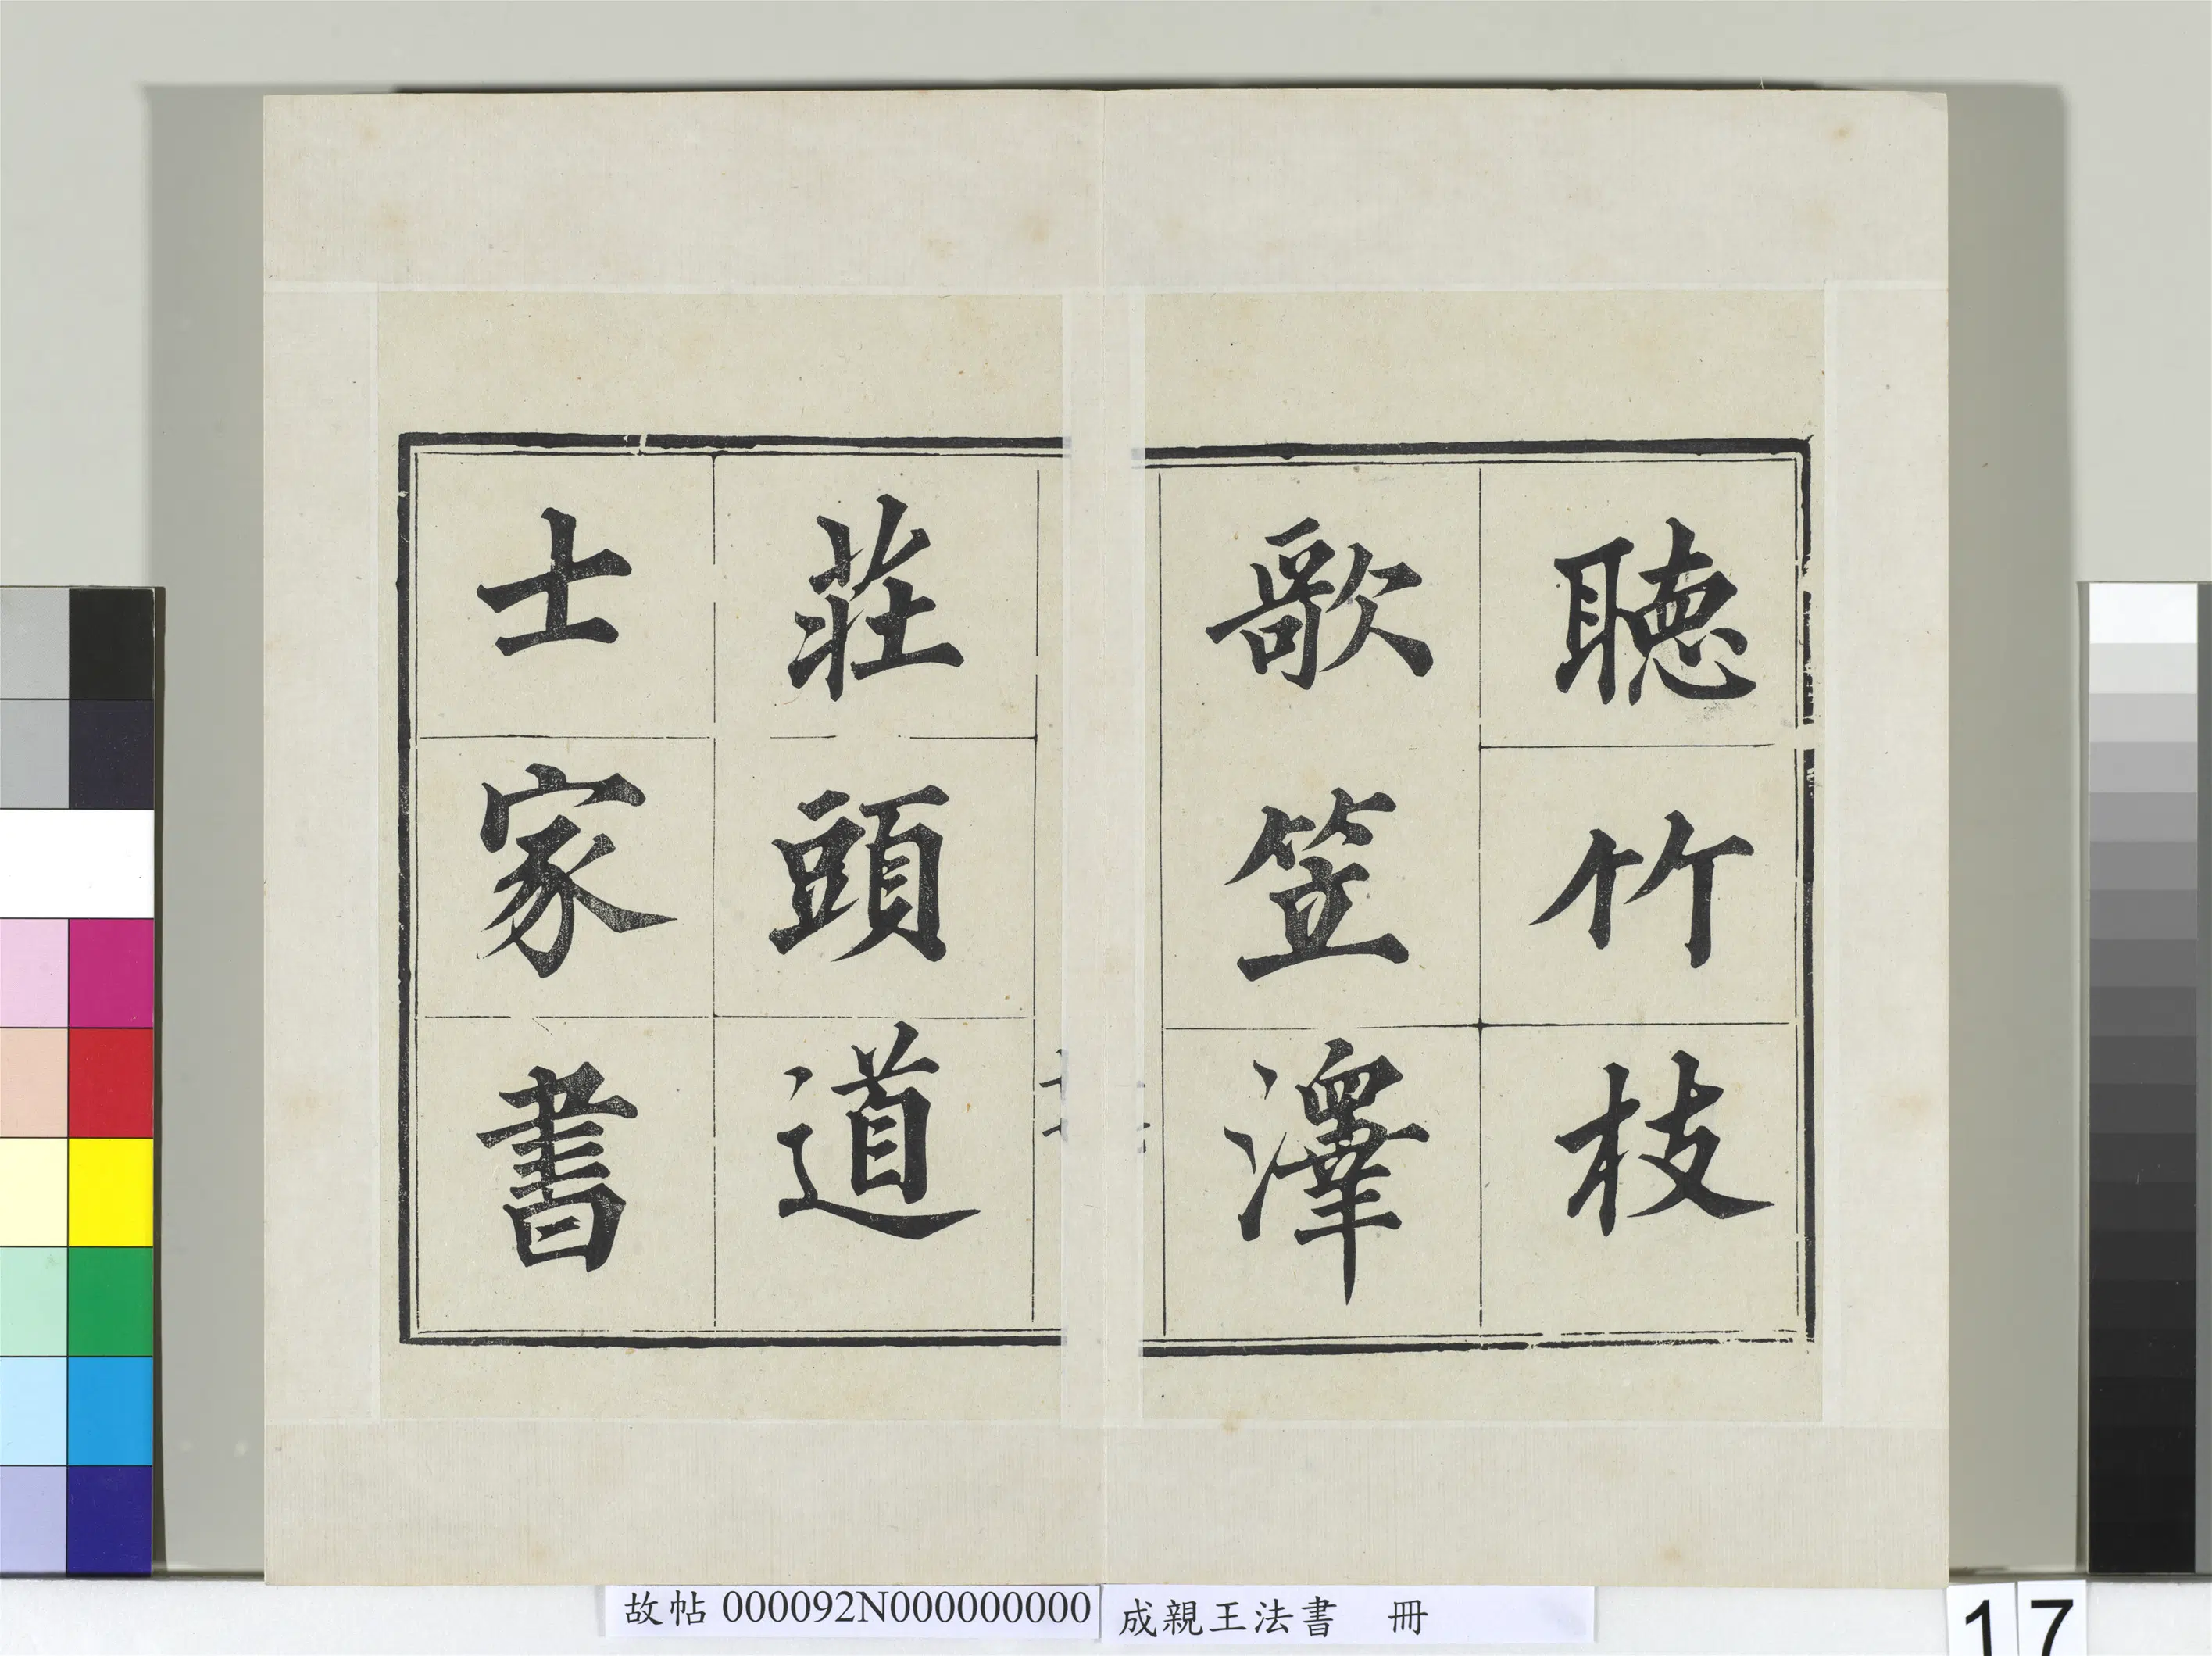 聽竹枝
歌笠澤
莊頭道
士家書
故帖 000092N000000000
成親王法書 冊
17